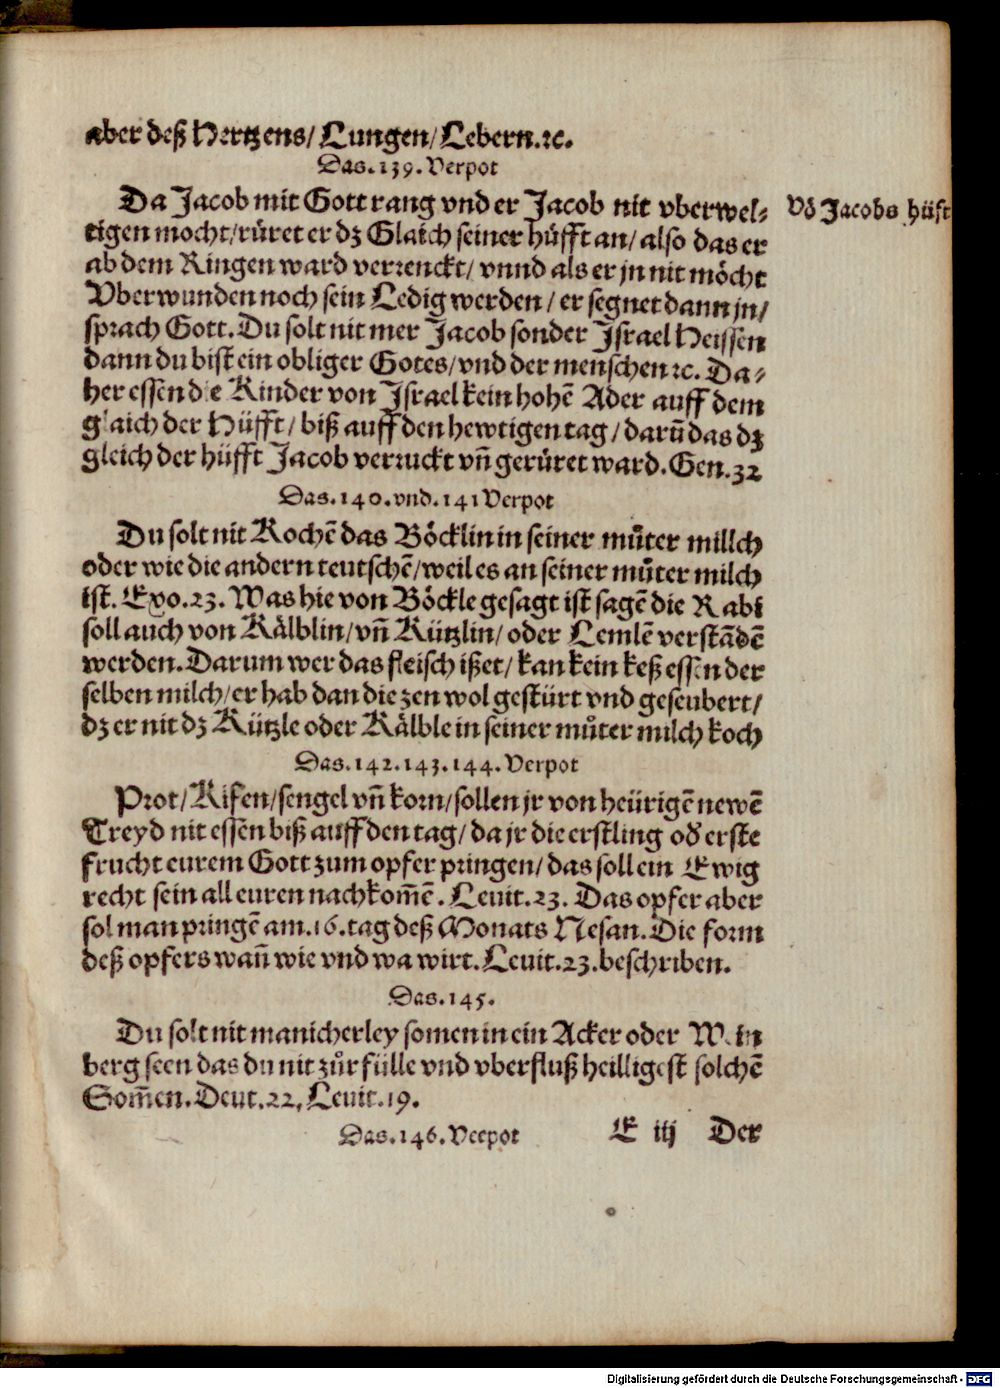 aber deß Hertzens/ Lungen/ Lebern.ꝛc.
Das.139.Verpot
Da Jacob mit Gott rang vnd er Jacob nit vberwel⸗
Vō Jacobs hüft
tigen mocht/růret er dz Glaich seiner hüfft an/ also das er
ab dem Ringen ward verrenckt/ vnnd als er jn nit möcht
Vberwunden noch sein Ledig werden/ er segnet dann jn/
sprach Gott. Du solt nit mer Jacob sonder Jsrael Heissen
dann du bist ein obliger Gotes/vnd der menschen ꝛc. Da⸗
her essen die Kinder von Jsrael kein hohē Ader auff dem
glaich der Hüfft/ biß auff den hewtigen tag/ darū das dz
gleich der hüfft Jacob verruckt vñ gerůret ward. Gen.32
Das.140.vnd.141 Verpot
Du solt nit Kochē das Böcklin in seiner můter millch
oder wie die andern teutschē/weil es an seiner můter milch
ist. Exo.23. Was hie von Böckle gesagt ist sagē die Rabi
soll auch von Kälblin/vñ Kützlin/ oder Lemlē verstādē
werden. Darum wer das fleisch ißet/ kan kein keß essen der
selben milch/er hab dan die zen wol gestürt vnd geseubert/
dz er nit dz Kützle oder Kälble in seiner můter milch koch
Das.142.143.144.Verpot
Prot/Kifen/sengel vñ korn/sollen jr von heürigē newē
Treyd nit essen biß auff den tag/ da jr die erstling oď erste
frucht eurem Gott zum opfer pringen/ das soll ein Ewig
recht sein all euren nachkom̄ē. Leuit.23. Das opfer aber
sol man pringē am.16.tag deß Monats Nesan. Die form
deß opfers wañ wie vnd wa wirt. Leuit.23.beschriben.
Das.145.
Du solt nit manicherley somen in ein Acker oder Wein
berg seen das du nit zůr fülle vnd vberfluß heilligest solchē
Som̄en. Deut.22, Leuit.19.
Das.146.Veepot
E iij Der
Digitalisierung gefördert durch die Deutsche Forschungsgemeinschaft - DFG